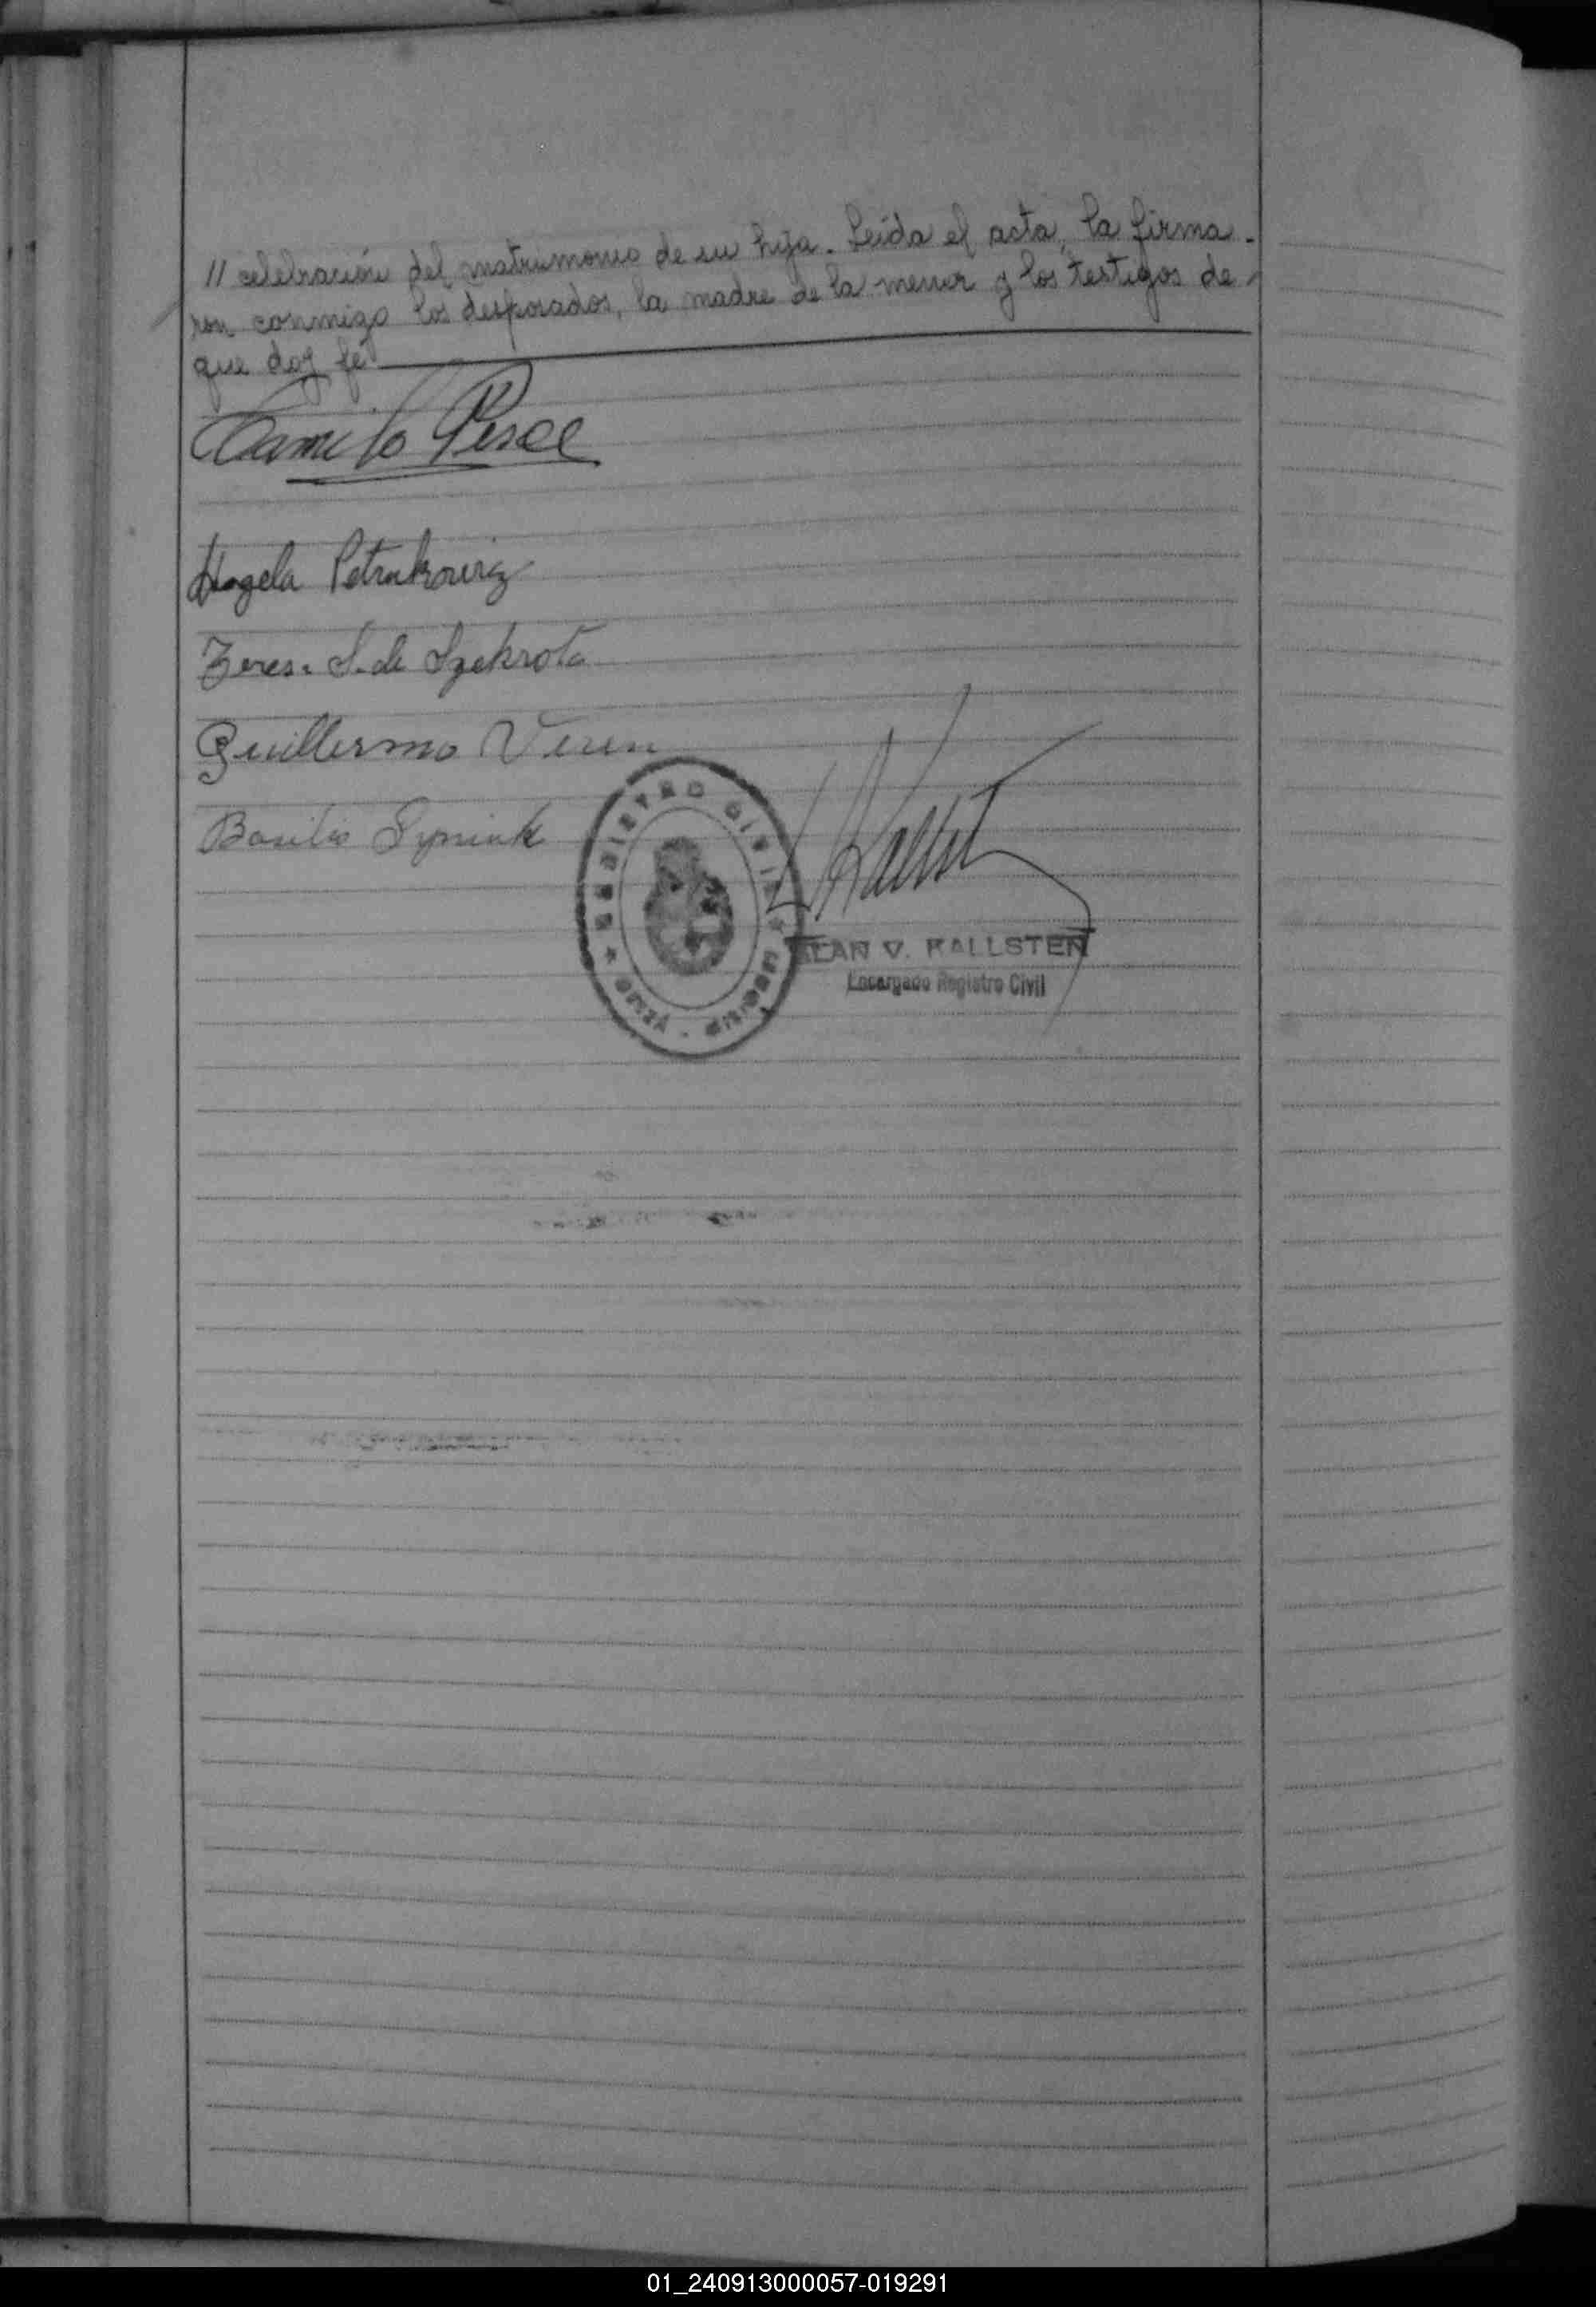 // celebración del matrimonio de su hija. Leída el acta, la firma-
ron conmigo los desposados, la madre de la menor y los testigos de
que doy fe
Camilo Pesce
Angela Petrukowicz
Teresa S. de Szekrota
Guillermo
Basilio
REGISTRO CIVIL
V. KALLSTEN
Encargado Registro Civil
01_240913000057-019291